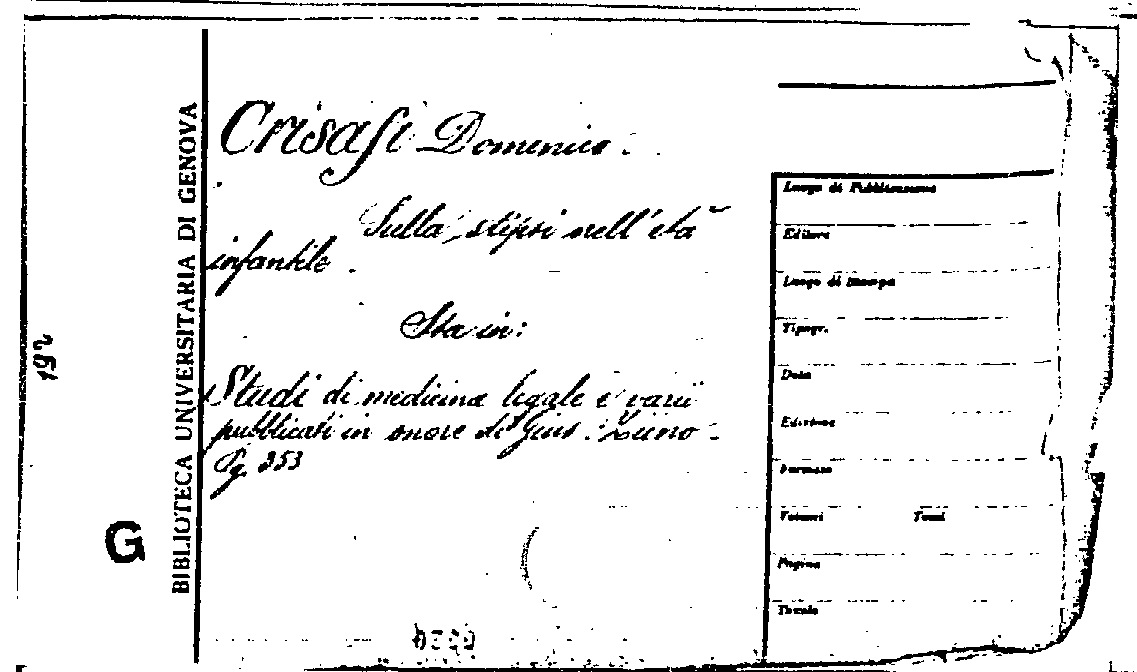 Crisafi Domenico.
Sulla stipsi nell'età
infantile.
Sta in:
Studi di medicina legale e varii
pubblicati in onore di Gius. Ziino.
Pg. 353
BIBLIOTECA UNIVERSITARIA DI GENOVA
G
192
Luogo di Pubblicazione
Editore
Luogo di Stampa
Tipogr.
Data
Edizione
Formato
Volumi Tomi
Pagine
Tavole